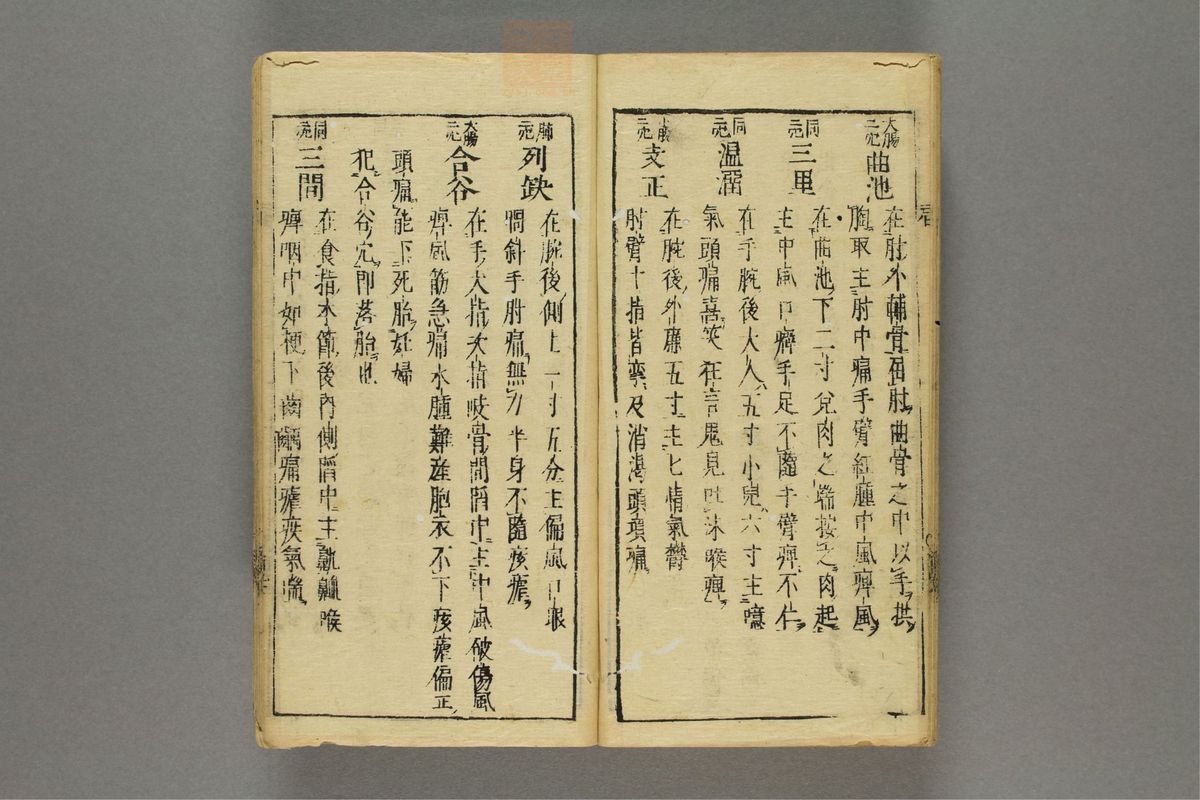 大腸二穴 曲池 在肘外輔骨屈肘曲骨之中以手拱
胸取主肘中痛手臂紅腫中風痹風
同二穴 三里 在曲池下二寸兌肉之端按之肉起
主中風口癖手足不隨手臂痹不仁
同二穴 温溜 在手腕後大人五寸小兒六寸主噫
氣頭痛喜笑狂言鬼見吐沫喉痹
小腸二穴 支正 在腕後外廉五寸主七情氣鬱
肘臂十指皆攣及消渇頭項痛
肺二穴 列缺 在腕後側上一寸五分主偏風口眼
喎斜手肘痛無力半身不隨痎瘧
大腸二穴 合谷 在手大指次指岐骨間陷中主中風破傷風
痹風筋急痛水腫難産胞衣不下痎瘧偏正
頭痛能下死胎妊婦
犯合谷穴即落胎也
同二穴 三間 在食指本節後内側陷中主鼽衂喉
痹咽中如梗下齒齲痛瘧疾氣喘